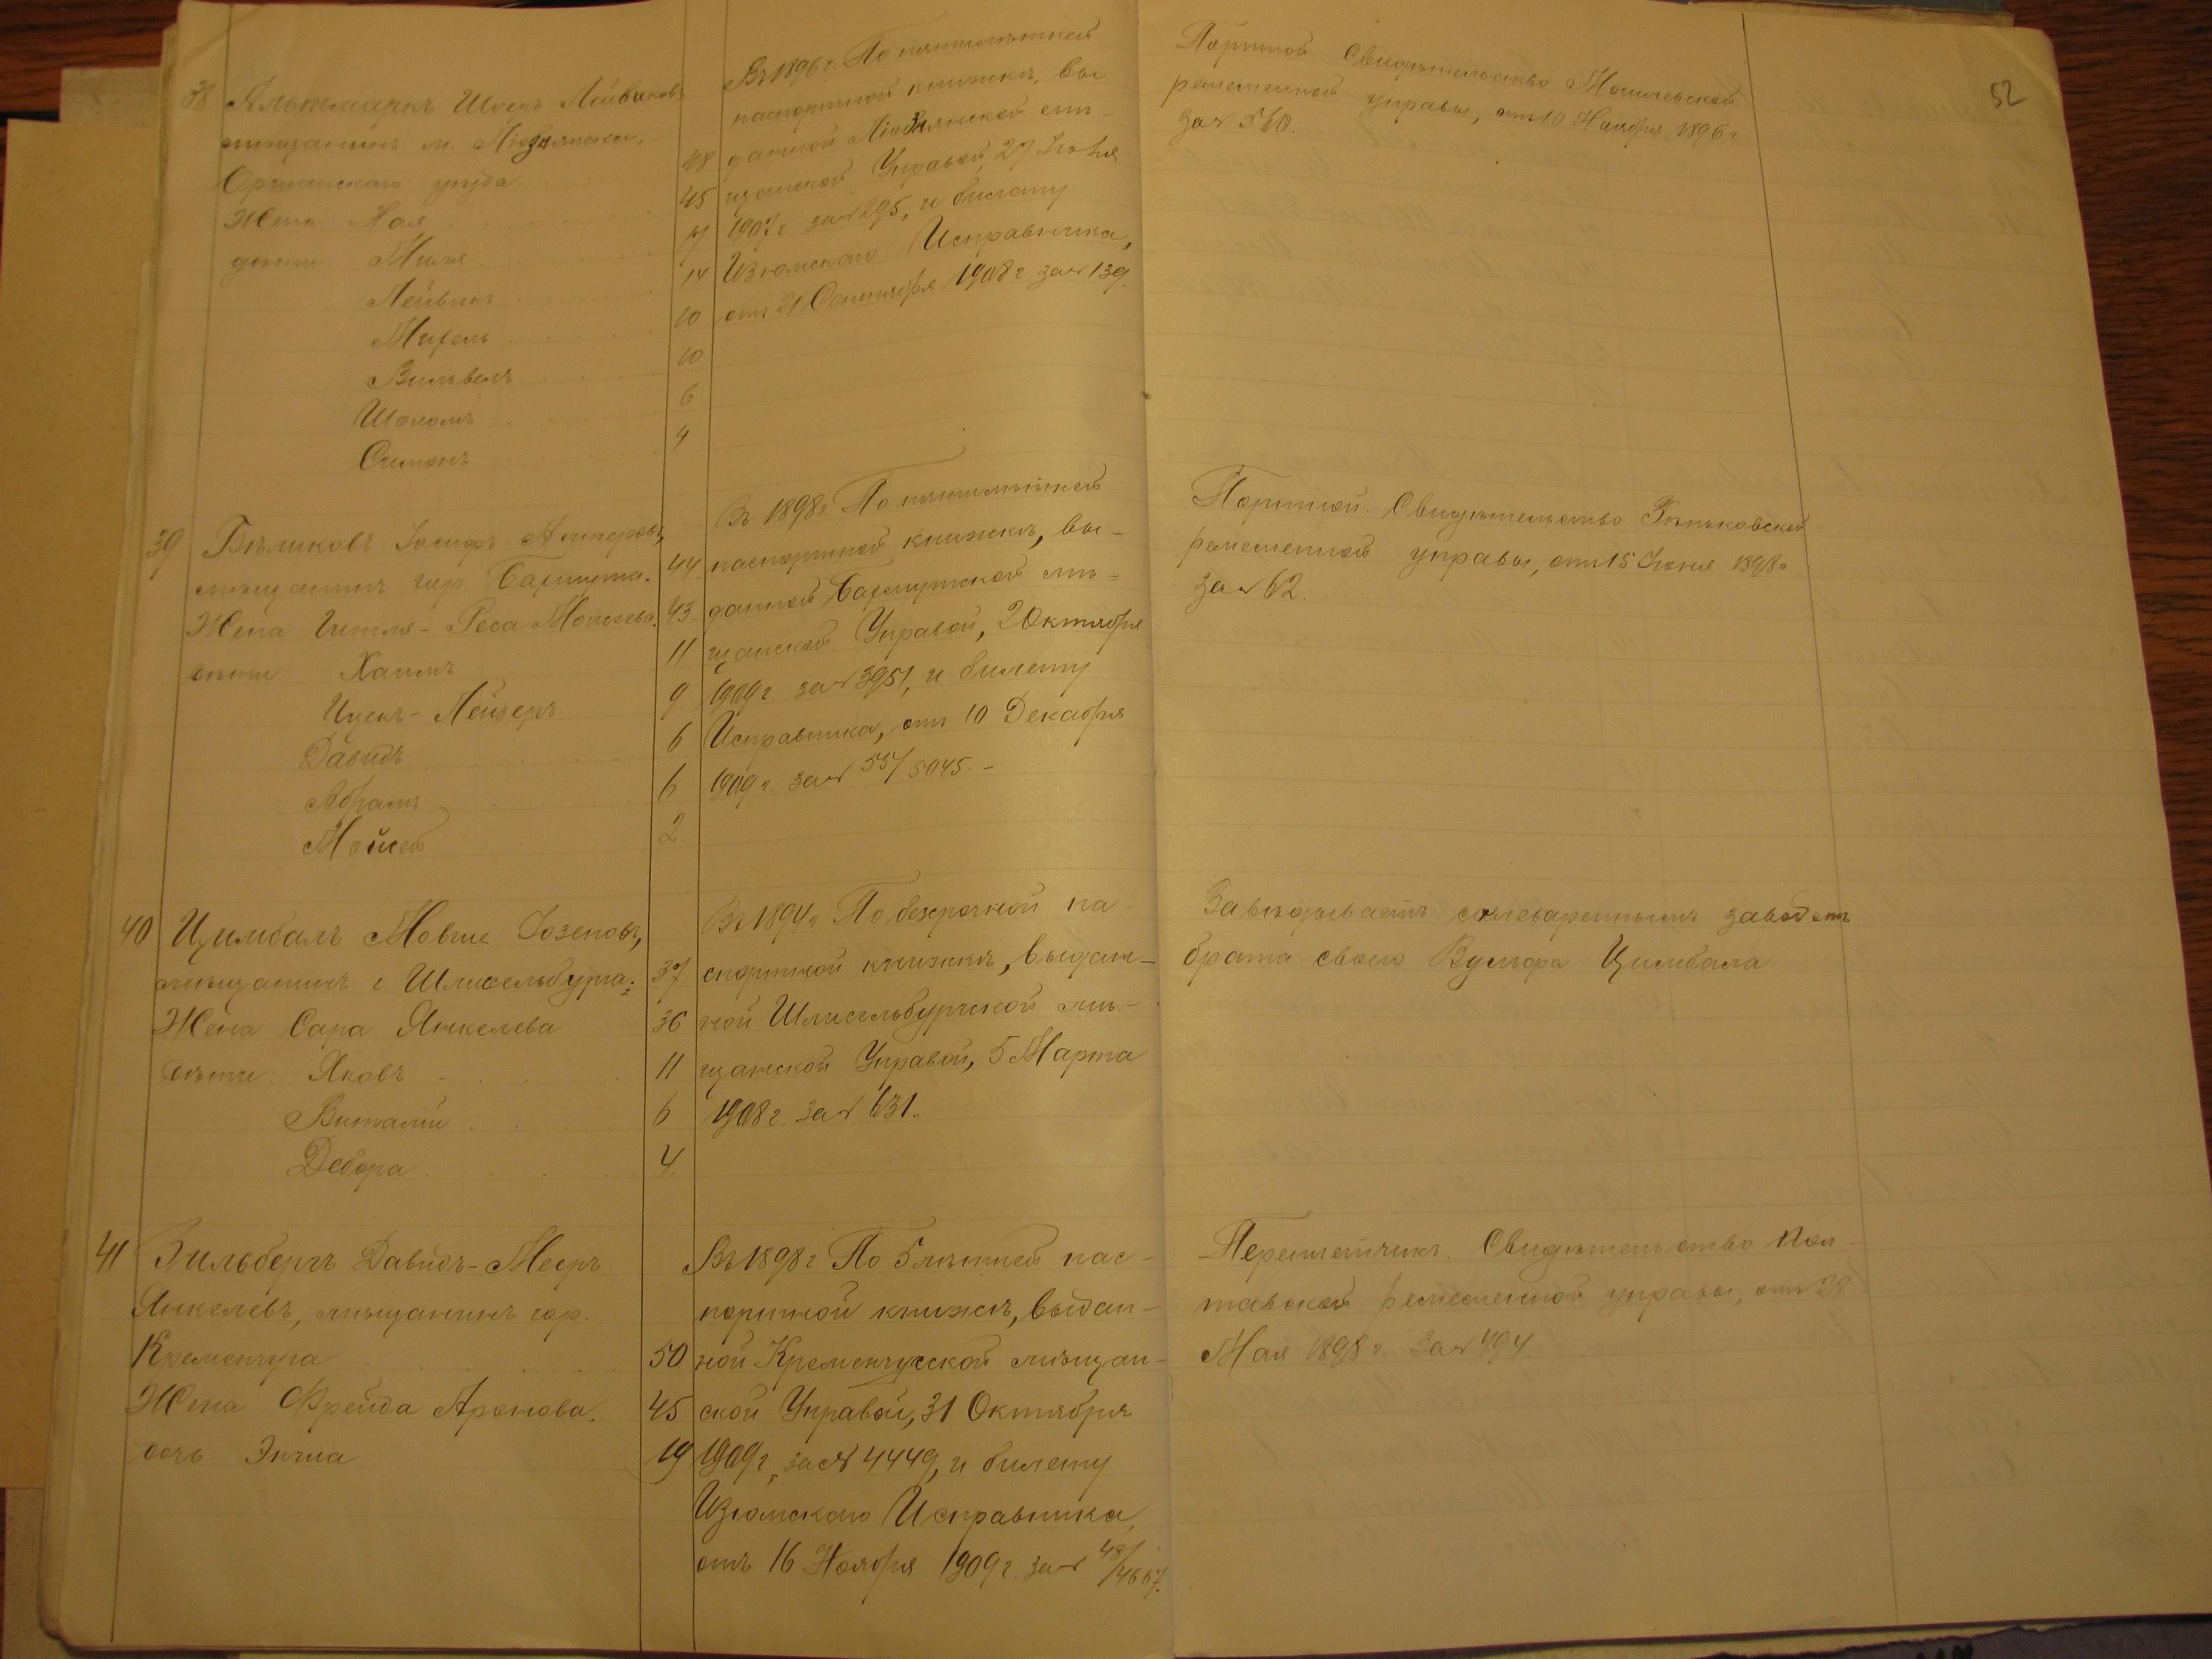 52
38 Альтмаркъ Шоелъ Лейвиковъ
мѣщанинъ м. Любавичи,
Оршанскаго уѣзда 48
Жена Хая 45
дѣти: Миля 17
Лейвикъ 14
Михель 10
Вильвелъ 10
Шоломъ 6
Симонъ 4
Въ 1896 г. По пятилѣтней
паспортной книжкѣ, вы
данной мѣ-
щанской Управой, 27 Іюля
1907 г за № 295, и билету
Изюмскаго Исправника,
отъ 21 Сентября 1908 г за № 139.
Портной Свидѣтельство Могилевской
ремесленной управы, отъ 10 Ноября 1896 г
за № 560.
39 Бѣликовъ Іосифъ
мѣщанинъ гор. Бахмута. 44
Жена Гитля-Реса Моисеева. 43.
дѣти Хаимъ 11
Ицекъ-Лейзеръ 9
Давидъ 6
Абрамъ 6
Мойсей 2.
Въ 1898 г. По пятилѣтней
паспортной книжкѣ, вы-
данной Бахмутской мѣ-
щанской Управой, 2 Октября
1909 г. за № 3951, и билету
Исправника, отъ 10 Декабря
1909 г. за № 55/5045.-
Портной. Свидѣтельство Зѣньковской
ремесленной управы, отъ 15 Іюня 1898 г
за № 62.
40 Цимбалъ Мовше
мѣщанинъ г. Шлисельбурга. 37
Жена Сара Янкелева 36
дѣти: Яковъ 11
Виталій 6
Дебора 4.
Въ 1894 г По безсрочной па-
спортной книжкѣ, выдан-
ной Шлисельбургской мѣ-
щанской Управой, 5 Марта
1908 г. за № 631.
Завѣдываетъ солевареннымъ заводомъ
брата своего Вульфа Цимбала
41 Зильбергъ Давидъ-Мееръ
Янкелевъ, мѣщанинъ гор.
Кременчуга 50
Жена Фрейда Аронова. 45
дочь Энтa 19
Въ 1898 г По 5 лѣтней пас-
портной книжкѣ, выдан-
ной Кременчугской мѣщан-
ской Управой, 31 Октября
1909 г, за № 4449, и билету
Изюмскаго Исправника,
отъ 16 Ноября 1909 г. за № 48/4667.
Переплетчикъ. Свидѣтельство Пол-
тавской ремесленной управы, отъ 28
Мая 1898 г. за № 494